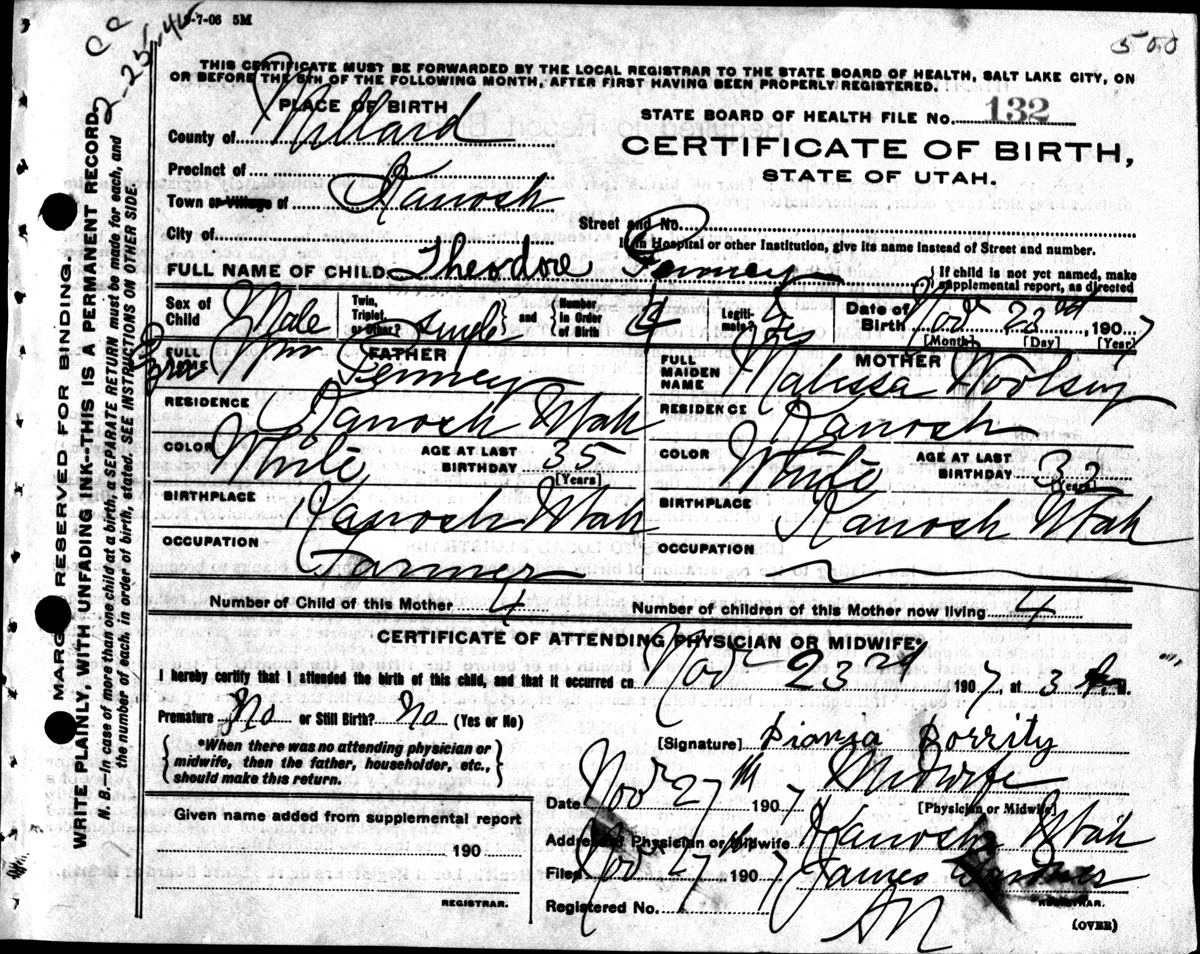 -7-06 5M
500
2-25-46
THIS CERTIFICATE MUST BE FORWARDED BY THE LOCAL REGISTRAR TO THE STATE BOARD OF HEALTH, SALT LAKE CITY, ON
OR BEFORE THE 5TH OF THE FOLLOWING MONTH, AFTER FIRST HAVING BEEN PROPERLY REGISTERED.
PLACE OF BIRTH
STATE BOARD OF HEALTH FILE No. 132
County of Millard
CERTIFICATE OF BIRTH,
STATE OF UTAH.
Precinct of
Town or Village of Kanosh
Street and No.
City of
If in Hospital or other Institution, give its name instead of Street and number.
FULL NAME OF CHILD Theodore Penney
If child is not yet named, make supplemental report, as directed
Sex of Child Male Twin, Triplet, or Other? Single and Number in Order of Birth 4 Legitimate? Yes Date of Birth Nov 23rd, 1907
[Month] [Day] [Year]
FULL NAME FATHER Wm Penney
FULL MAIDEN NAME MOTHER Malissa Woolsey
RESIDENCE Kanosh Utah
RESIDENCE Kanosh
COLOR White AGE AT LAST BIRTHDAY 35 [Years]
COLOR White AGE AT LAST BIRTHDAY 32 [Years]
BIRTHPLACE Kanosh Utah
BIRTHPLACE Kanosh Utah
OCCUPATION Farmer
OCCUPATION
Number of Child of this Mother 4 Number of children of this Mother now living 4
CERTIFICATE OF ATTENDING PHYSICIAN OR MIDWIFE*
I hereby certify that I attended the birth of this child, and that it occurred on Nov 23rd 1907, at 3 M.
Premature No or Still Birth? No (Yes or No)
*When there was no attending physician or midwife, then the father, householder, etc., should make this return.
[Signature]
Midwife
Date Nov 27th 1907 [Physician or Midwife]
Given name added from supplemental report
190
REGISTRAR.
Address of Physician or Midwife Kanosh Utah
Filed Nov 27th 1907 James
Registered No. 17 REGISTRAR.
(OVER)
MARGIN RESERVED FOR BINDING.
WRITE PLAINLY, WITH UNFADING INK--THIS IS A PERMANENT RECORD.
N. B.—In case of more than one child at a birth, a SEPARATE RETURN must be made for each, and
the number of each, in order of birth, stated. SEE INSTRUCTIONS ON OTHER SIDE.